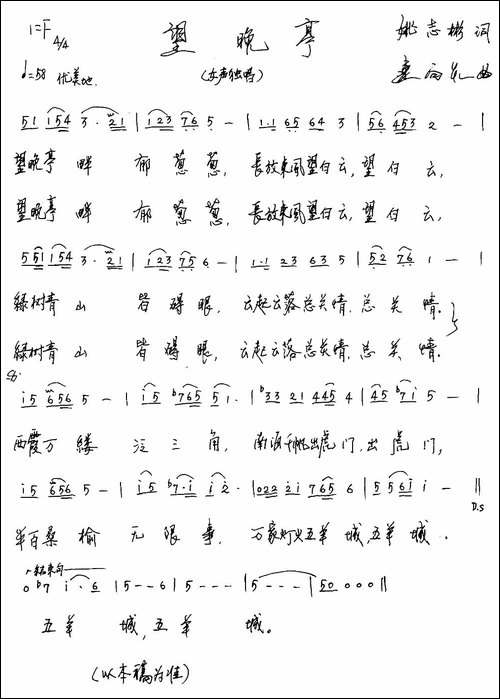 1=F 4/4 望晚亭 姚志彬 词
♩=58 优美地 (女声独唱) 曲
51 154 3· 21 | 123 76 5 - | 1·1 65 64 3 | 56 453 2 - |
望晚亭畔 郁葱葱, 長放東風望白云, 望白云,
望晚亭畔 郁葱葱, 長放東風望白云, 望白云,
551 154 3· 21 | 123 75 6 - | 1·1 23 63 5 | 52 76 1 - |
綠树青山 皆碍眼, 云起云落总关情, 总关情.
綠树青山 皆碍眼, 云起云落总关情, 总关情.
i5 656 5 - | i5 b765 51· | b33 221 445 4 | 45 b7i 5 - |
西霞万缕 泛三角, 南海千帆出虎门, 出虎门,
i5 656 5 - | i5 b7·i i2· | 022 2i 765 6 | 556i i - ‖
D.S
半百桑榆 无限事, 万家灯火五羊城, 五羊城.
结束句
0 b7 i·6 | 5 - - 6 | 5 - - - | 5 - - - | 50 0 0 0 ‖
五羊城, 五羊城。
(以本稿为准)